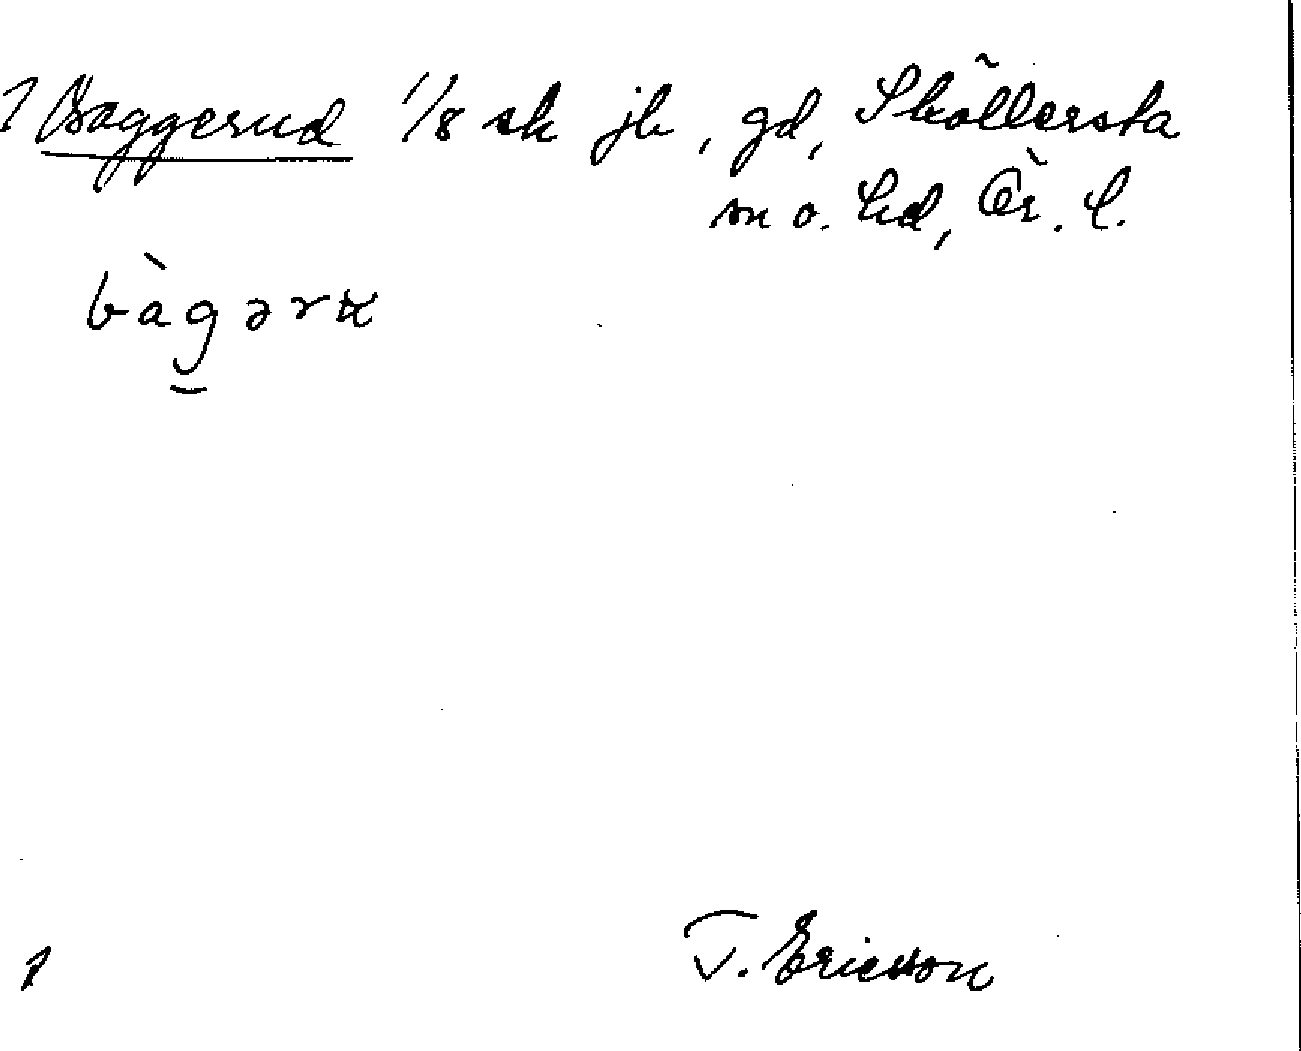 1 Baggerud 1/8 sk jb, gd, Sköllersta
sn o. hd, Ör. l.
bàgərʉ
1 T. Ericsson